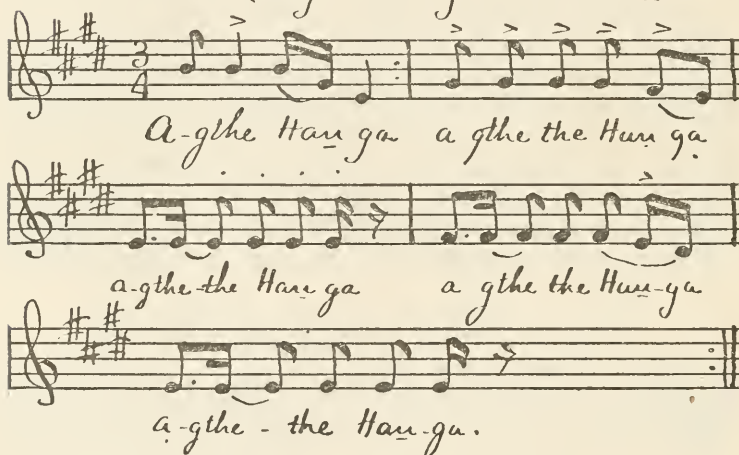 3
4
A-gthe Han ga a gthe the Hun ga
a-gthe-the Han ga a gthe the Hun-ga
a-gthe - the Han-ga.